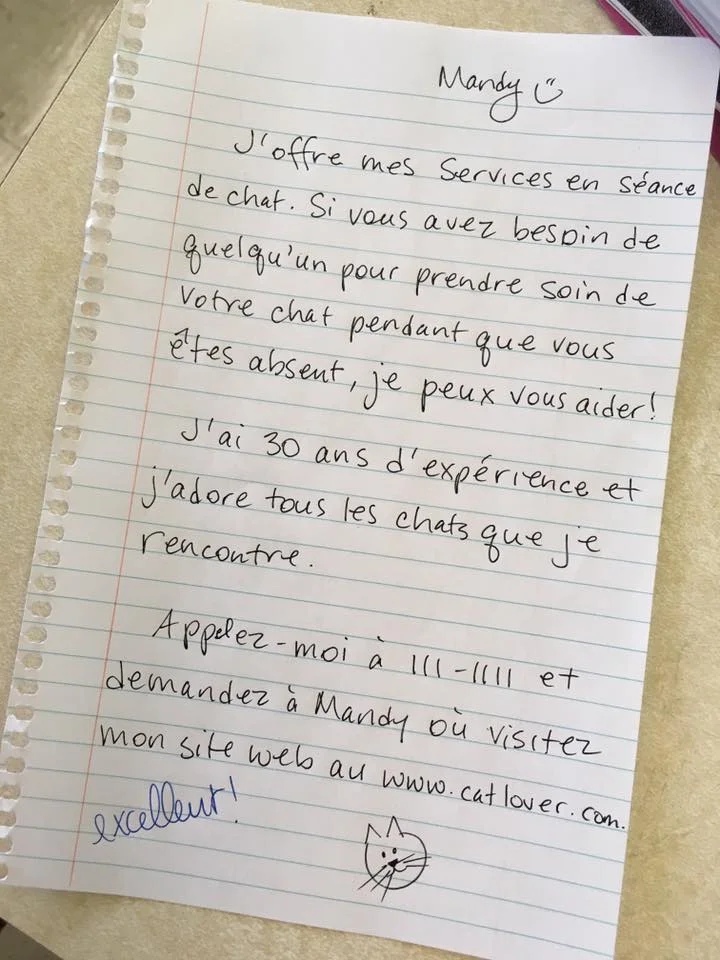 Mandy
J'offre mes services en séance
de chat. Si vous avez besoin de
quelqu'un pour prendre soin de
votre chat pendant que vous
êtes absent, je peux vous aider!
J'ai 30 ans d'expérience et
j'adore tous les chats que je
rencontre.
Appelez-moi à 111-1111 et
demandez à Mandy où visitez
mon site web au www.catlover.com.
excellent!